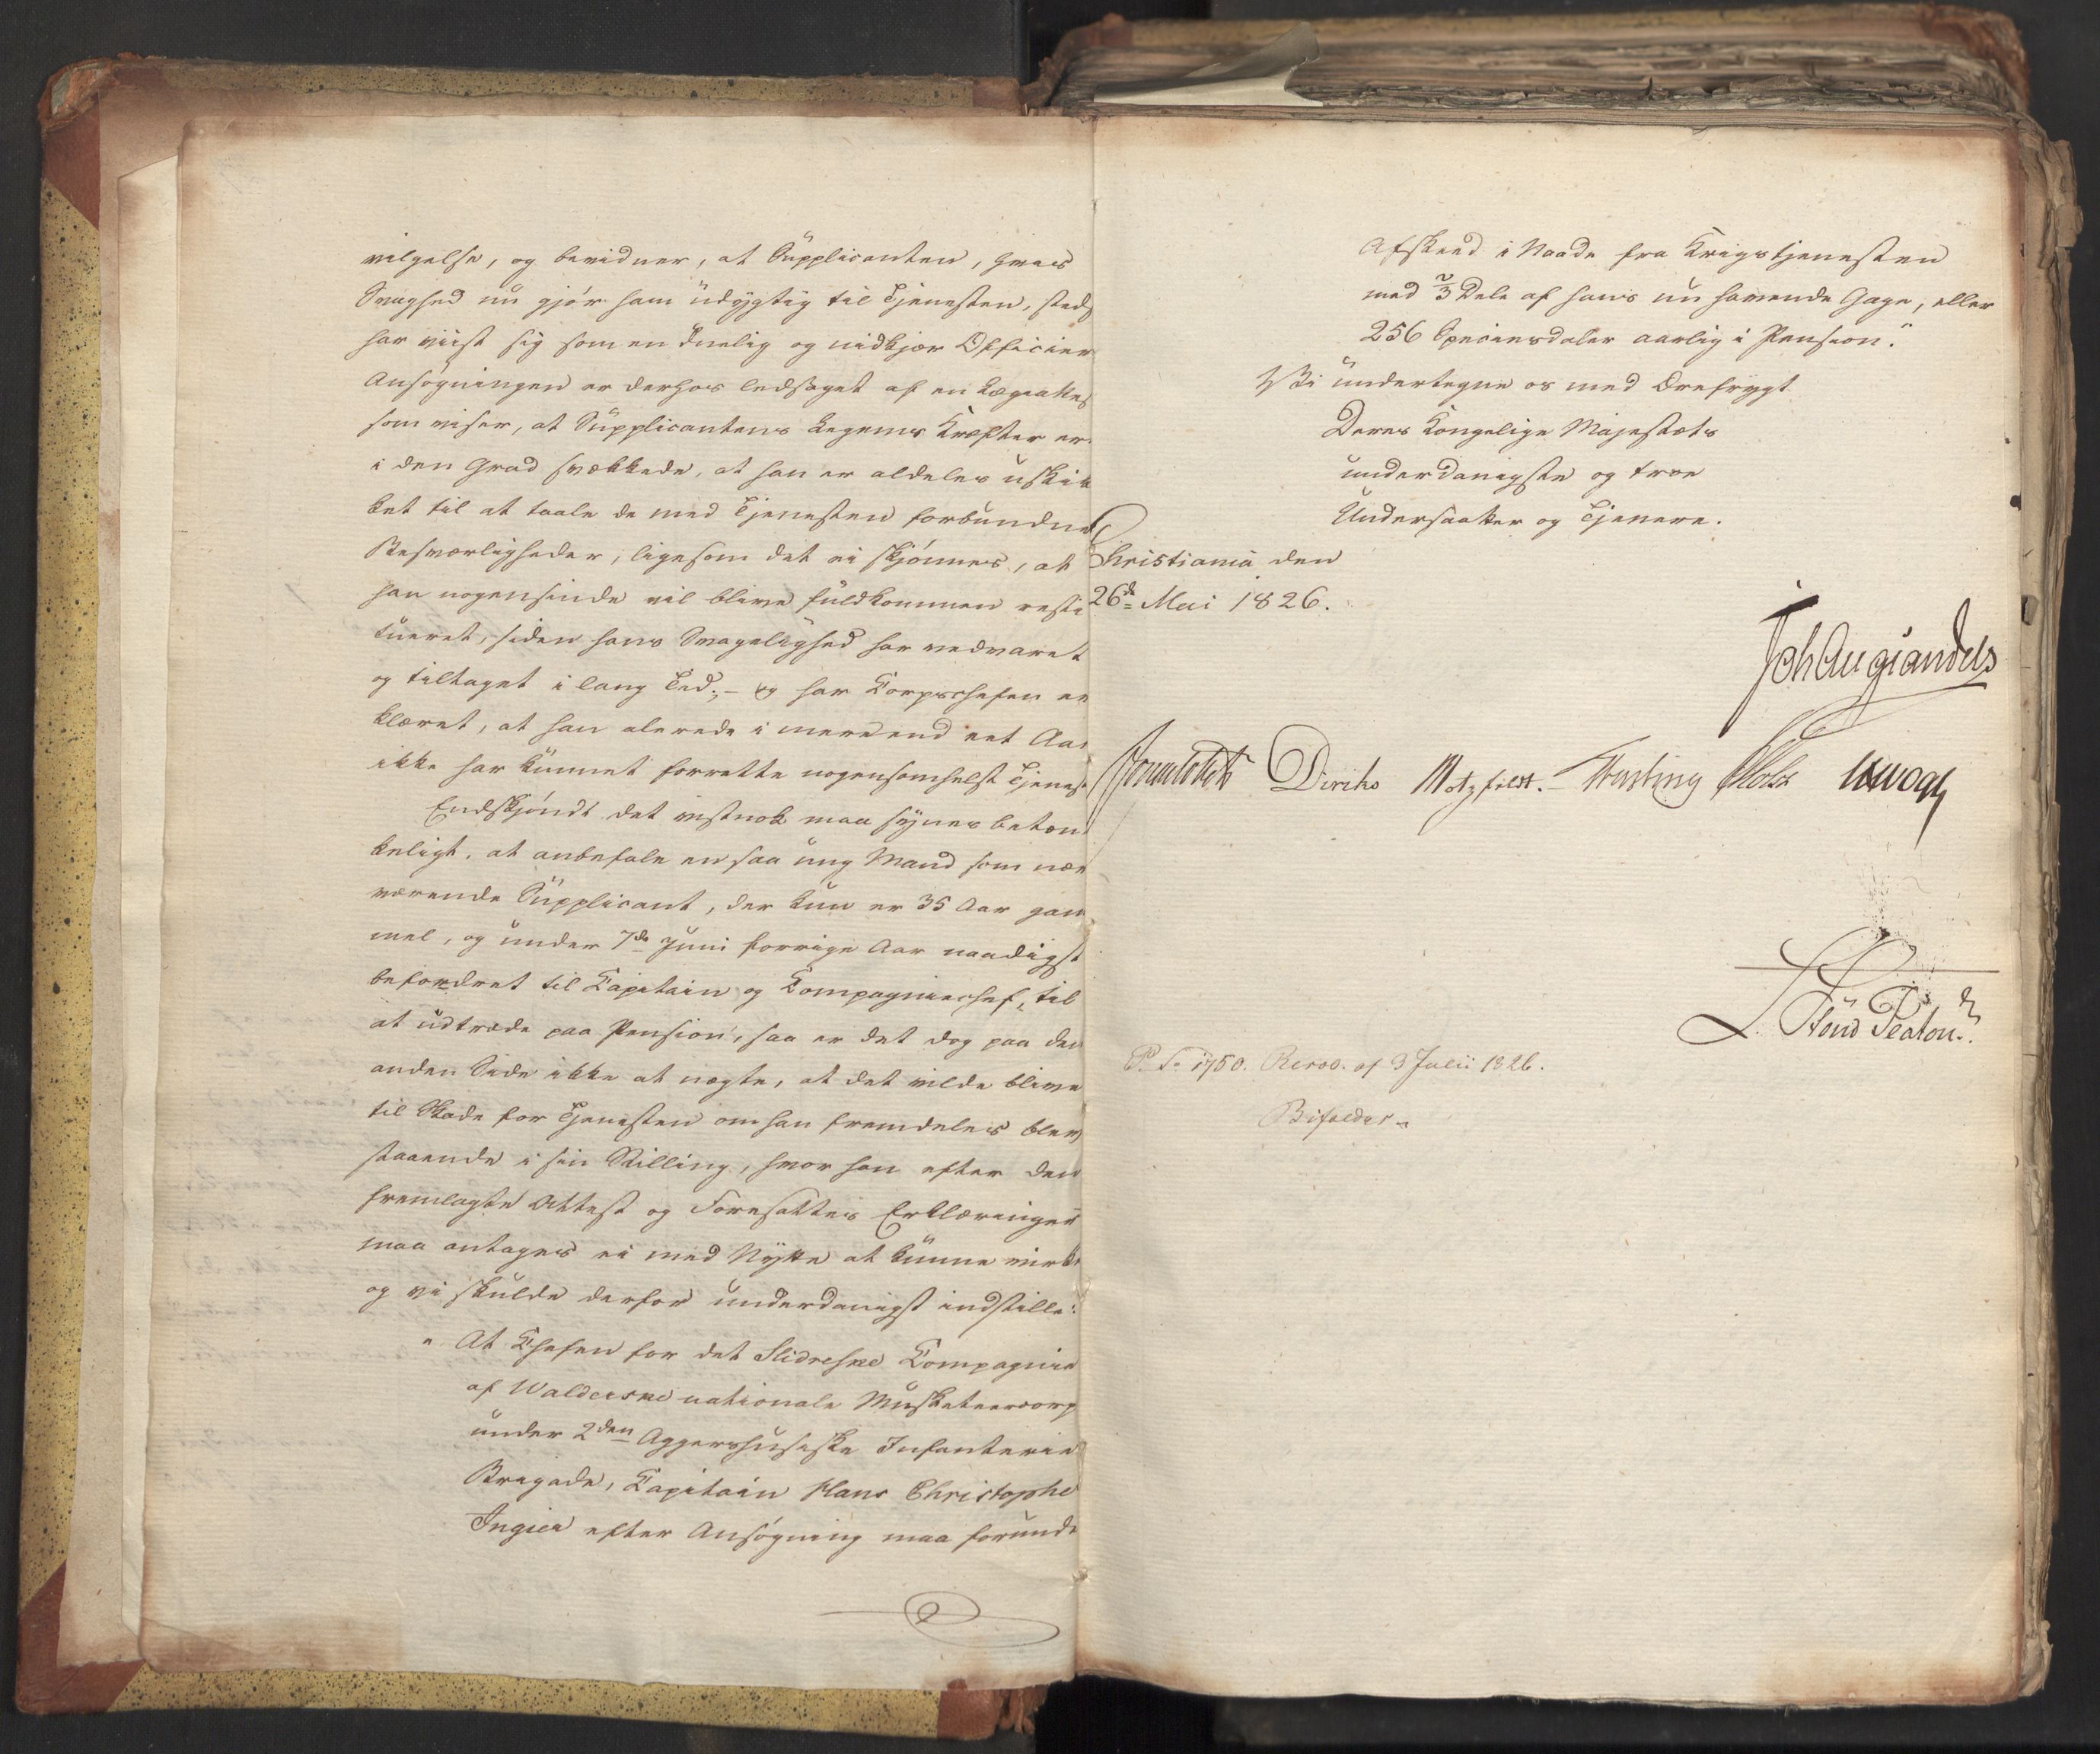 vilgelse, og bevidner, at Supplicanten, hvis
Svaghed nu gjør ham udygtig til Tjenesten, steds
har viist sig som en duelig og nidkjær Officier
Ansøgningen er derhos ledsaget af en Lægeattest
som viser, at Supplicantens Legems Kræfter er
i den Grad svækkede, at han er aldeles uskik
ket til at taale de med Tjenesten forbundne
Besværligheder, ligesom det ei skjønnes, at
han nogensinde vil blive fuldkommen resti
tueret, siden hans Svagelighed har vedvaret
og tiltaget i lang Tid; – og har Corpschefen er
klæret, at han alerede i mere end eet Aar
ikke har kunnet forrette nogensomhelst Tjenest
Endskjøndt det vistnok maa synes betæn
keligt, at anbefale en saa ung Mand som nær
værende Supplicant, der kun er 35 Aar gam
mel, og under 7de Juni forrige Aar naadigst
befordret til Capitain og Compagniechef, til
at udtræde paa Pension, saa er det dog paa den
anden Side ikke at negte, at det vilde blive
til Skade for Tjenesten om han fremdeles blev
staaende i sin Stilling, hvor han efter den
fremlagte Attest og Foresattes Erklæringer
maa antages ei med Nytte at kunne virke
og vi skulde derfor underdanigst indstille:
" At Chefen for det Slidreske Compagnie
af Walderske nationale Musketeercorps
under 2den Aggershusiske Infanterie
Brigade, Capitain Hans Christopher
Ingier efter Ansøgning maa forundes
Afskeed i Naade fra Krigstjenesten
med 2/3 Dele af hans nu havende Gage, eller
256 Speciesdaler aarlig i Pension."
Vi undertegne os med Ærefrygt
Deres Kongelige Majestæts
underdanigste og troe
Undersaatter og Tjenere.
Christiania den
26de Mai 1826.
Joh Aug Sandels
Sommerfeldt Diriks Motzfeldt. Fasting Holst
L. Stoud Platou
1750. Resol. af 3 Julii 1826.
Bifaldes